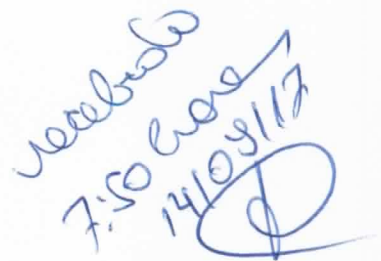 recebido
7:50 horas
14/09/17